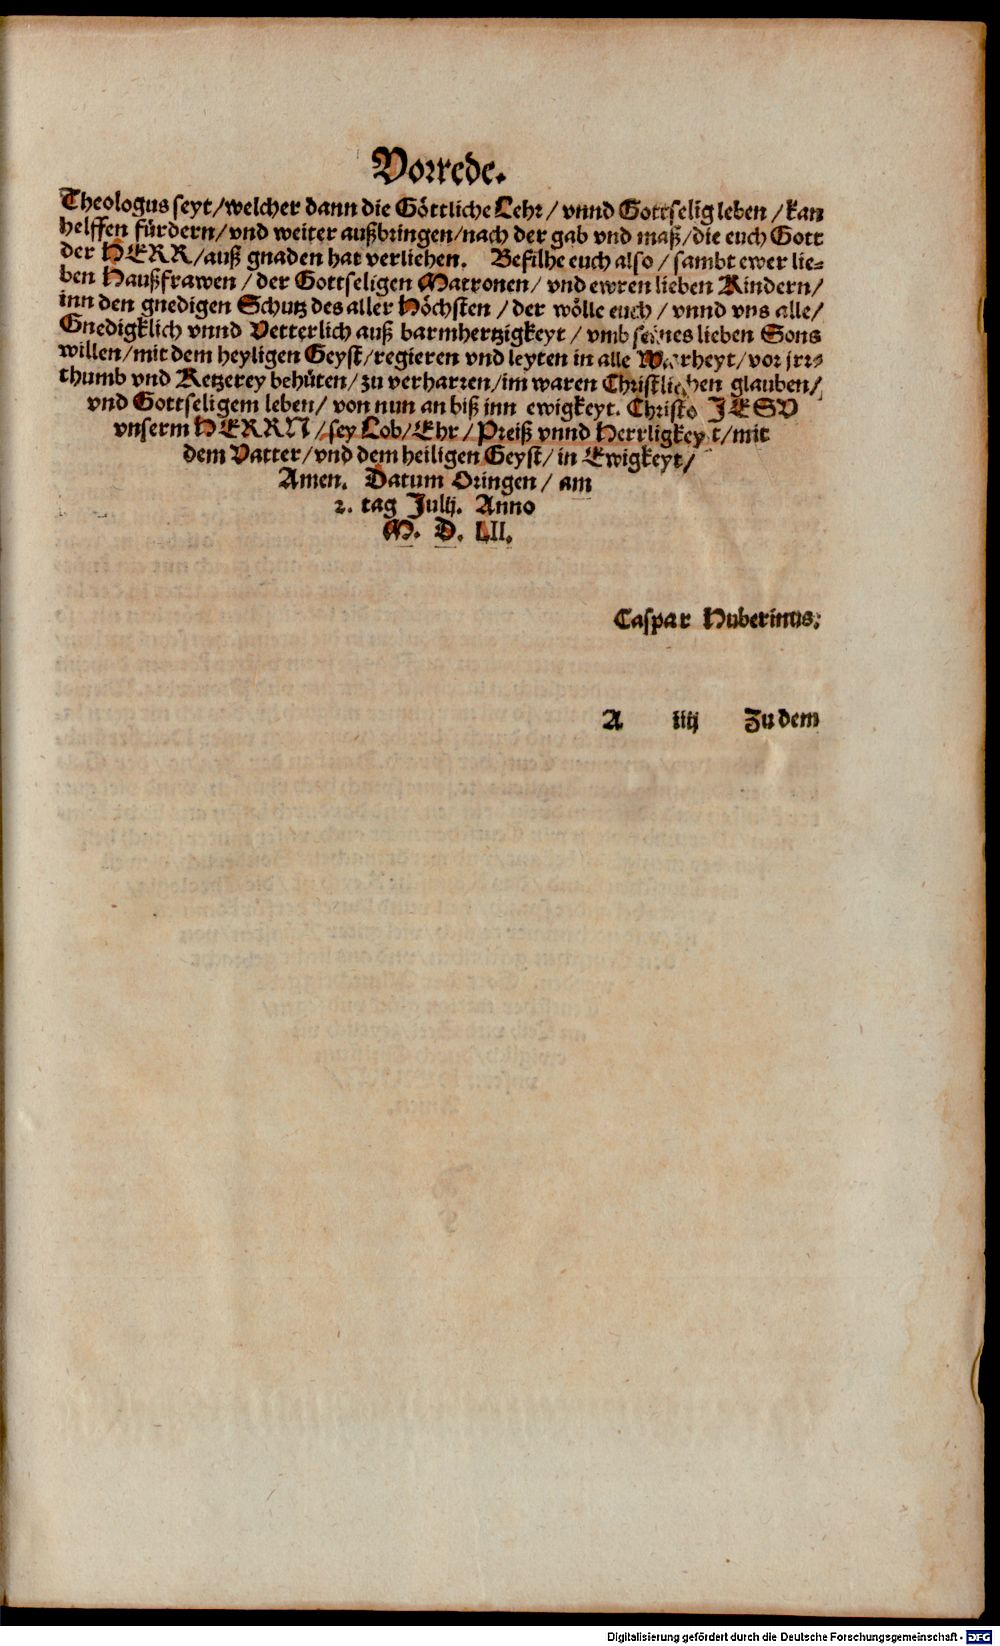 Vorrede.
Theologus seyt/welcher dann die Göttliche Lehr/ vnnd Gottselig leben/kan
helffen fürdern/vnd weiter außbringen/nach der gab vnd maß/die euch Gott
der HERR/auß gnaden hat verliehen. Befilhe euch also/ sambt ewer lie-
ben Haußfrawen/ der Gottseligen Matronen/ vnd ewren lieben Kindern/
inn den gnedigen Schutz des aller Höchsten/ der wölle euch/ vnnd vns alle/
Gnedigklich vnnd Vetterlich auß barmhertzigkeyt/ vmb seines lieben Sons
willen/mit dem heyligen Geyst/regieren vnd leyten in alle Warheyt/vor jrr-
thumb vnd Ketzerey behüten/zu verharren/im waren Christlichen glauben/
vnd Gottseligem leben/ von nun an biß inn ewigkeyt. Christo JESV
vnserm HERRN/sey Lob/Ehr/Preiß vnnd Herrligkeyt/mit
dem Vatter/vnd dem heiligen Geyst/in Ewigkeyt/
Amen. Datum Oringen/ am
2. tag Julij. Anno
M. D. LII.
Caspar Huberinus.
A iiij Zu dem
Digitalisierung gefördert durch die Deutsche Forschungsgemeinschaft - DFG